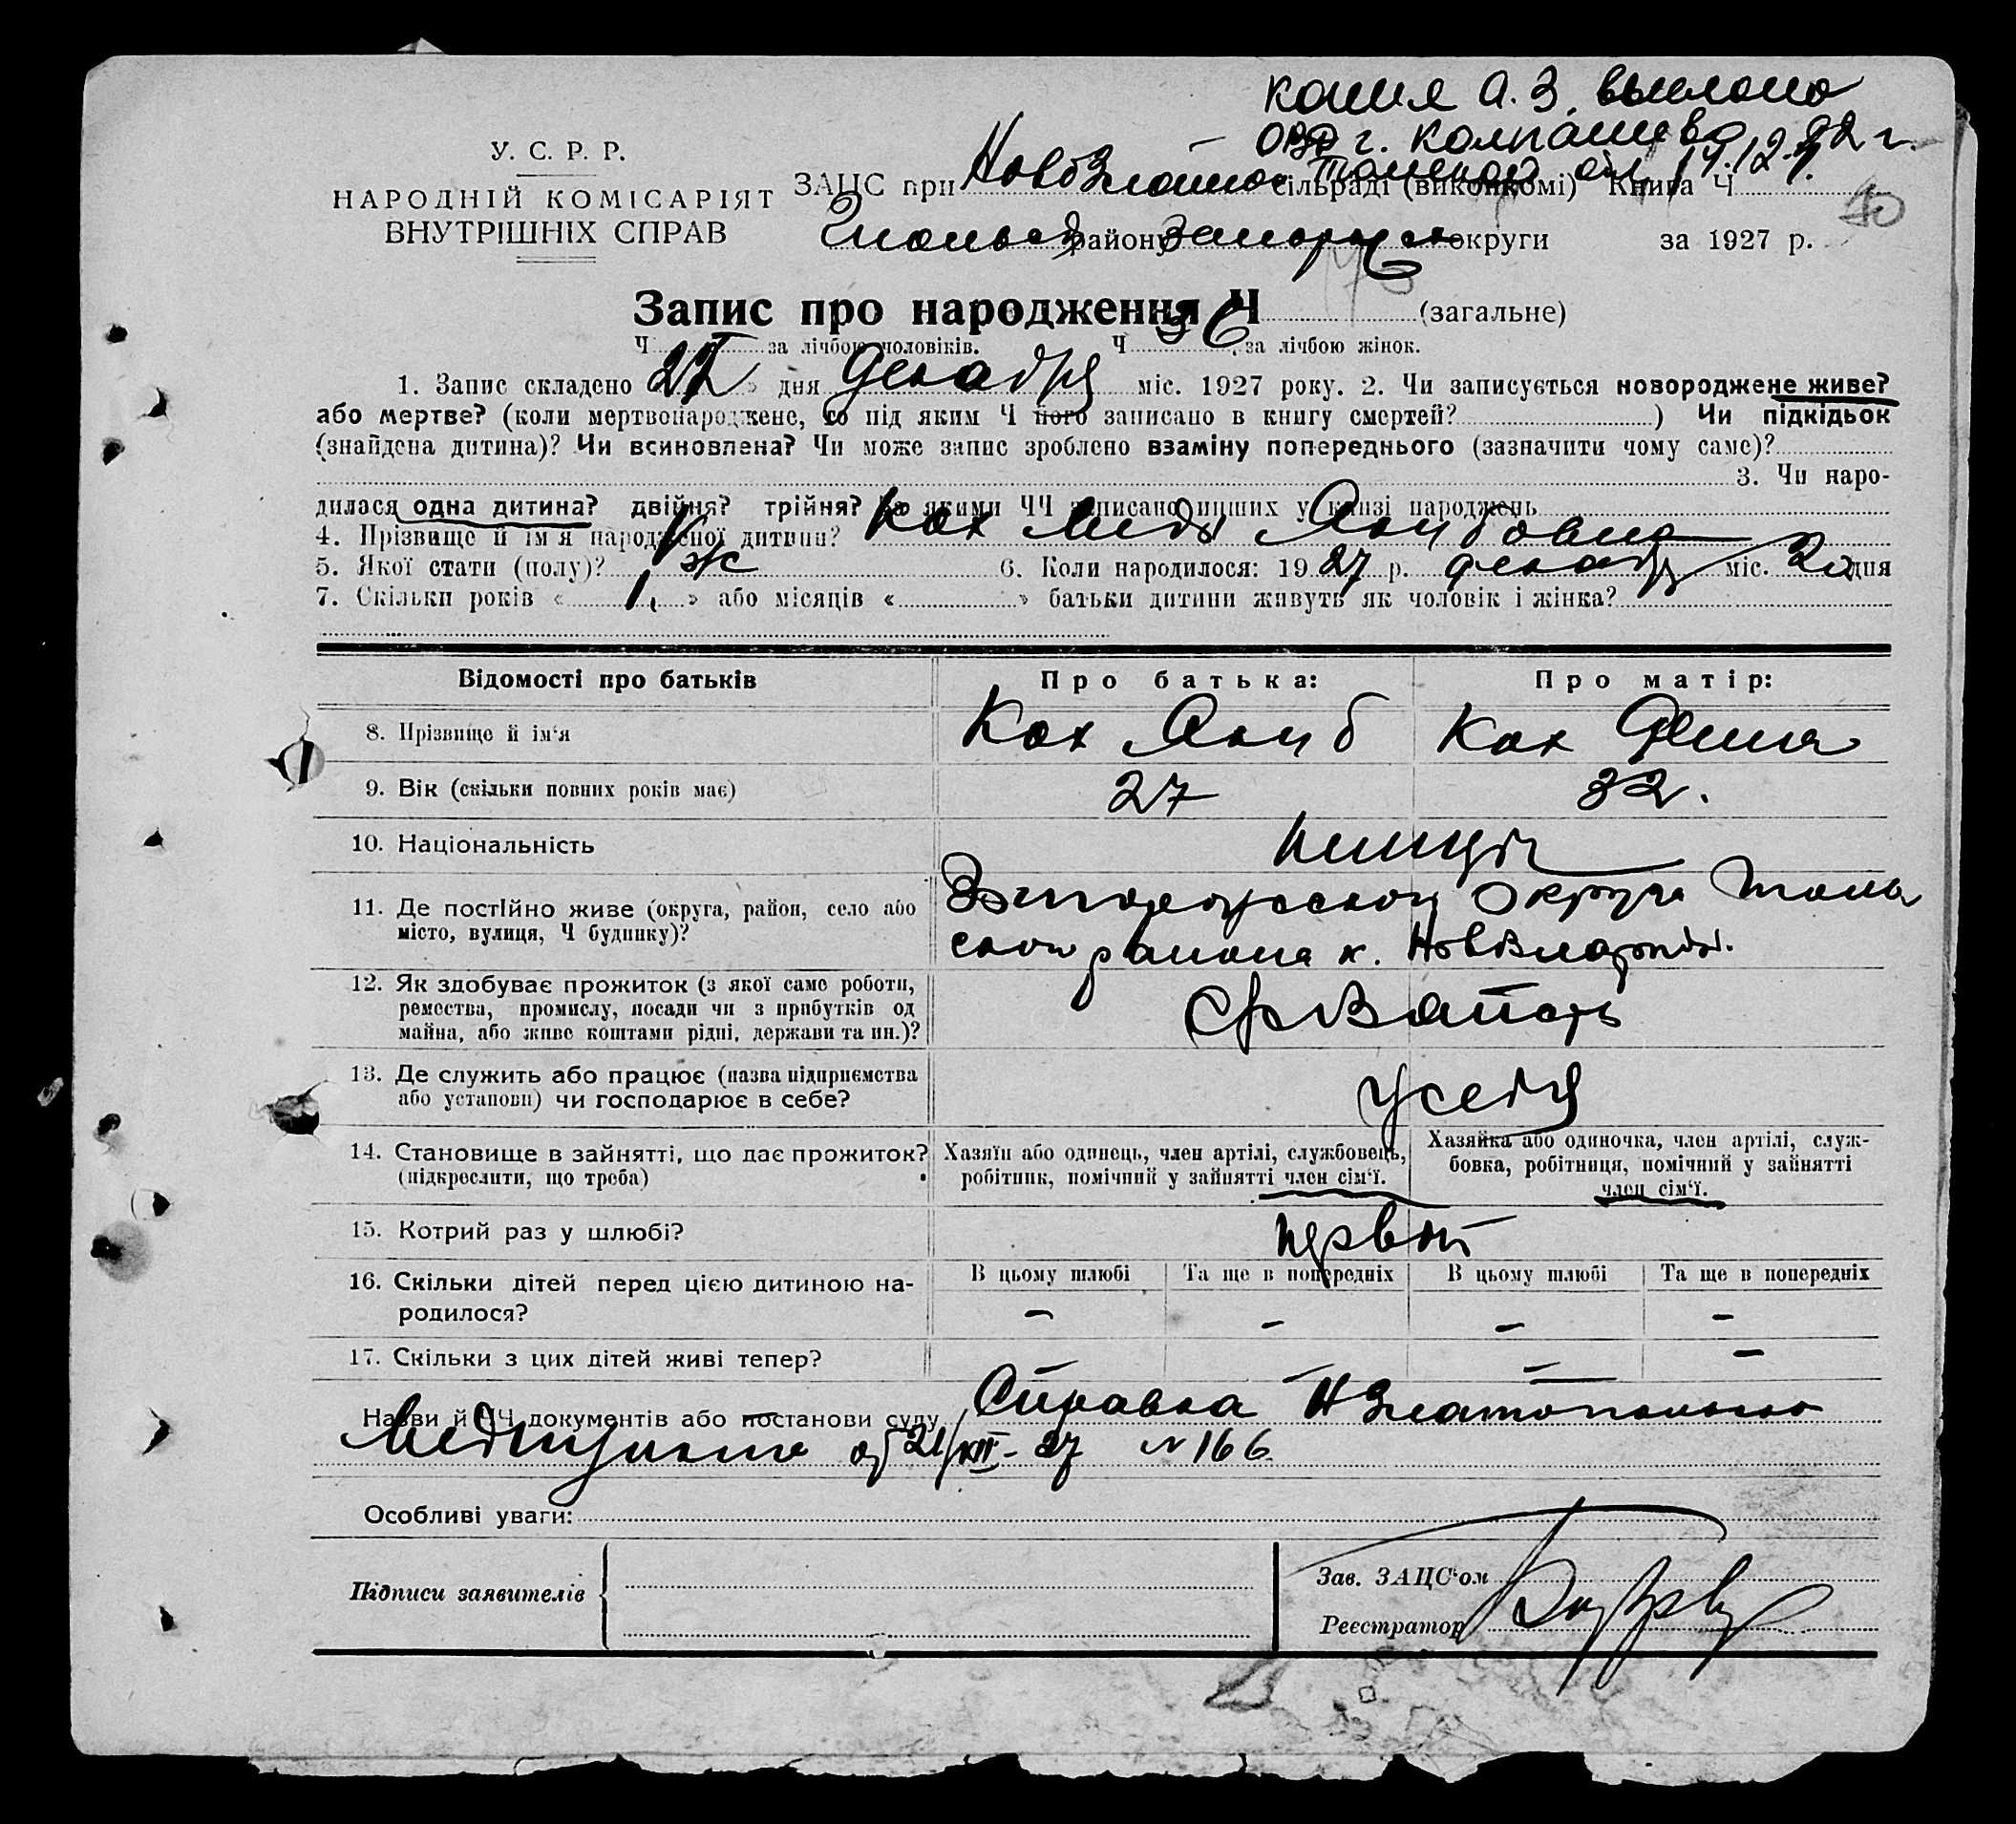 копия а.з. выслана
г. Колпашево
14.12.92 г.
У. С. Р. Р.
НАРОДНІЙ КОМІСАРІЯТ
ВНУТРІШНІХ СПРАВ
ЗАЦС при сільраді (виконкомі) Книга Ч
району округи за 1927 р.
40
Запис про народження Ч (загальне)
Ч за лічбою чоловіків. Ч 36 за лічбою жінок.
1. Запис складено » дня Декабря міс. 1927 року. 2. Чи записується новороджене живе?
або мертве? (коли мертвонароджене, то під яким Ч його записано в книгу смертей? ) Чи підкідьок
(знайдена дитина)? Чи всиновлена? Чи може запис зроблено взаміну попереднього (зазначити чому саме)?
3. Чи наро-
дилася одна дитина? двійня? трійня? За якими ЧЧ записано инших у книзі народжень
4. Прізвище й ім'я народженої дитини? Кох Лида Якубовна
5. Якої стати (полу)? ж 6. Коли народилося: 19 27 р. декабр міс. 20 дня
7. Скільки років « 1 » або місяців « » батьки дитини живуть як чоловік і жінка?
Відомості про батьків Про батька: Про матір:
8. Прізвище й ім'я Кох Якуб Кох
9. Вік (скільки повних років має) 27 32.
10. Національність немцы
11. Де постійно живе (округа, район, село або
місто, вулиця, Ч будинку)?
Запорожской Округа
района к.
12. Як здобуває прожиток (з якої саме роботи,
ремества, промислу, посади чи з прибутків од
майна, або живе коштами рідні, держави та ин.)?
13. Де служить або працює (назва підприємства
або установи) чи господарює в себе?
у себя
14. Становище в зайнятті, що дає прожиток?
(підкреслити, що треба)
Хазяїн або одинець, член артілі, службовець,
робітник, помічний у зайнятті член сім'ї.
Хазяйка або одиночка, член артілі, служ-
бовка, робітниця, помічний у зайнятті
член сім'ї.
15. Котрий раз у шлюбі? первый
16. Скільки дітей перед цією дитиною на-
родилося?
В цьому шлюбі Та ще в попередніх В цьому шлюбі Та ще в попередніх
– – – –
17. Скільки з цих дітей живі тепер? – – – –
Назви й ЧЧ документів або постанови суду Справка
от 21/XII-27 N 166
Особливі уваги:
Підписи заявителів
Зав. ЗАЦС'ом
Реєстратор